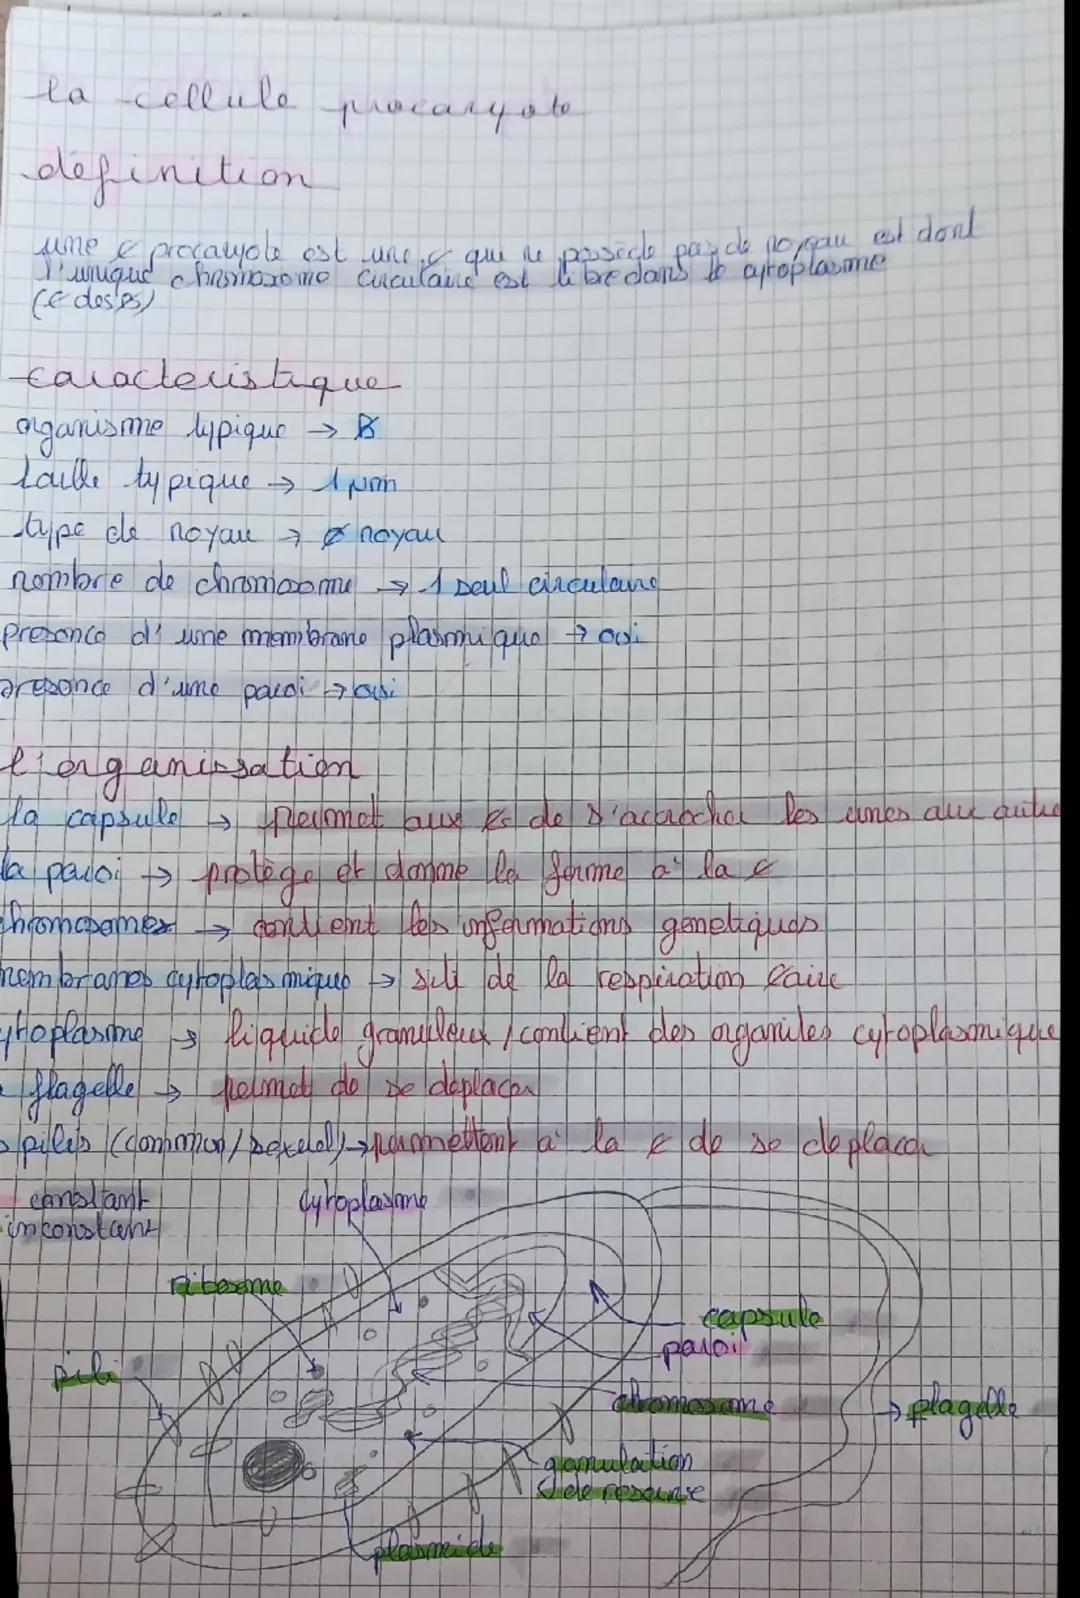 la cellule procaryote
définition
une ȼ procaryote est une ȼ qui ne possède pas de noyau est dont
l'unique chromosome circulaire est libre dans le cytoplasme
caracteristique
organisme typique → B
taille typique → 1 µm
type de noyau → ø noyau
nombre de chromosome → 1 seul circulaire
presence d'une membrane plasmique → oui
presence d'une paroi → oui
l'organisation
la capsule → permet aux ȼs de s'accrocher les unes aux autre
la paroi → protège et donne la forme à la ȼ
chromosomes → contient les informations genetiques
membranes cytoplasmique → de la respiration
cytoplasme → liquide granuleux / contient des organites cytoplasmique
flagelle → permet de se deplacer
pilis (commun/sexuel) → permettent à la ȼ de se deplacer
constant
inconstant
cytoplasme
ribosome
capsule
paroi
pili
chromosome
flagelle
granulation
de reserve
plasmide